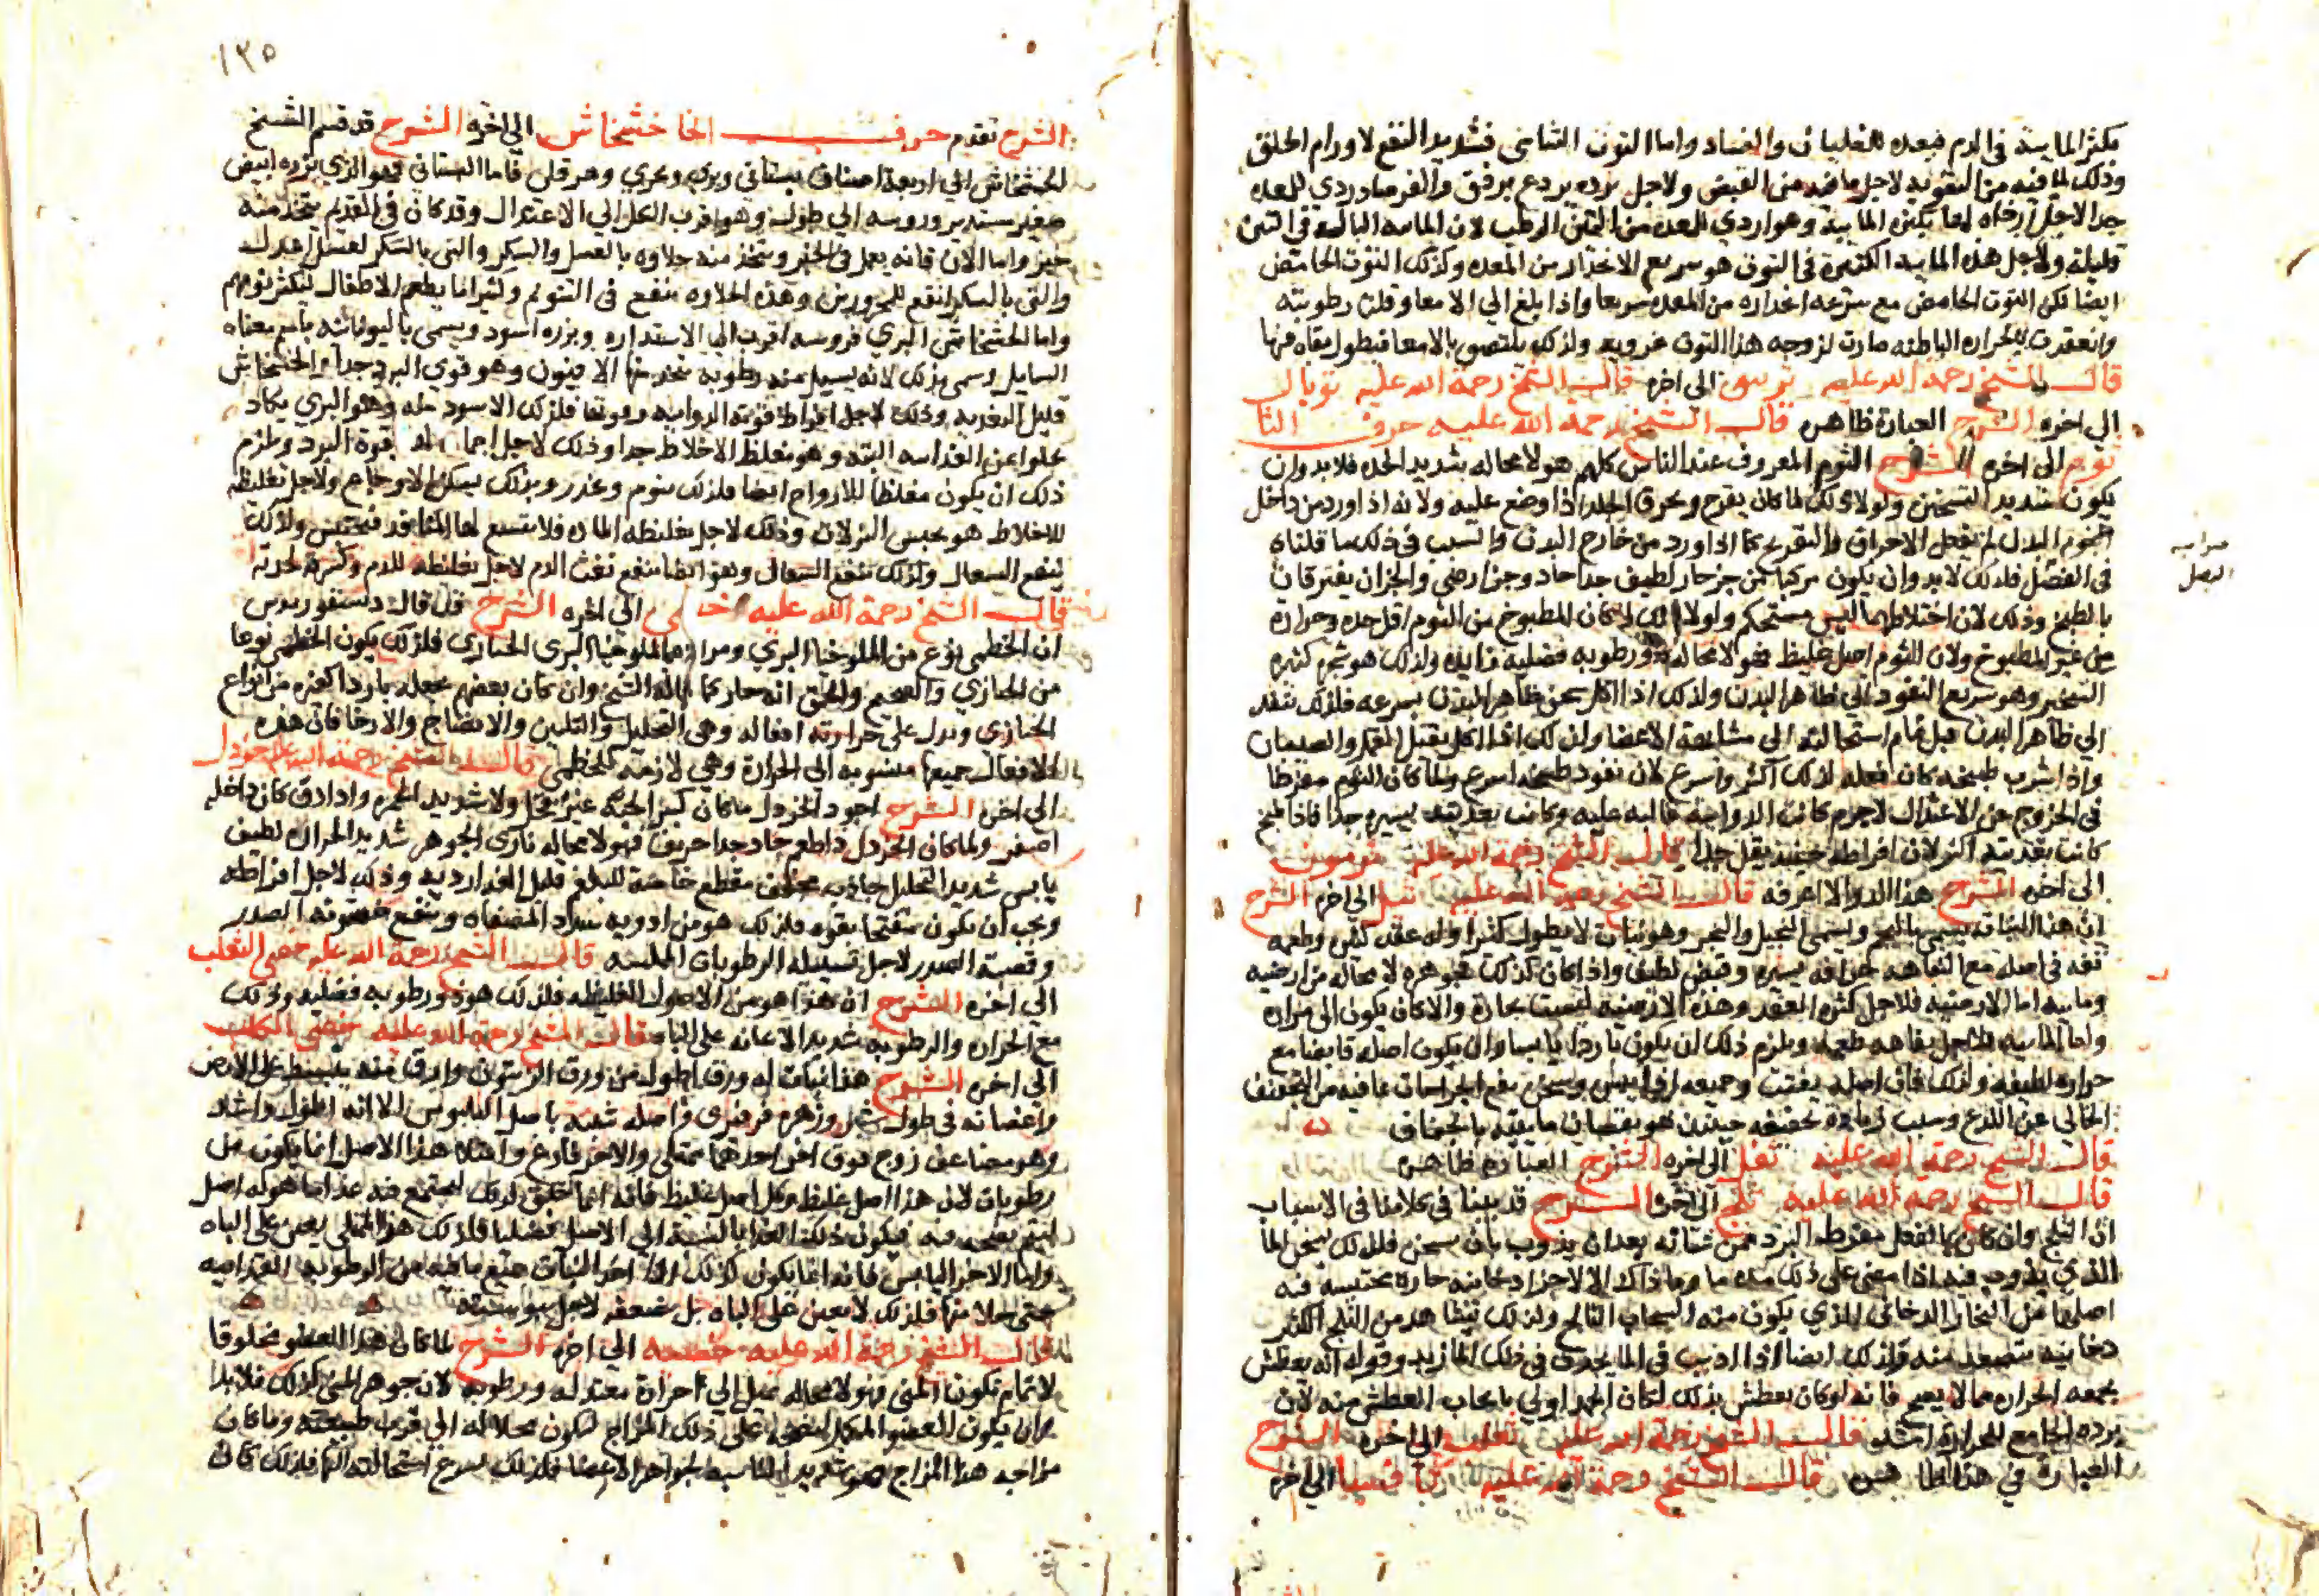 يكثر المايية في الدم فيعده للغليان والفساد واما التوت الشامى فشديد النفع لاورام الحلق
وذلك لما فيه من التقوية لاجل ما فيه من القبض ولاجل برده يردع برفق والفرصاد ردي للمعده
جدا لاجل ارخاه لها بكثرة المايية وهو اردي للمعده من التين الرطب لان الماييه الباله في التين
قليلة ولاجل هذه الماييه الكثيرة في التوت هو سريع الانحدار من المعده وكذلك التوت الحامض
ايضا لكن التوت الحامض مع سرعه انحداره من المعده سريعا واذا بلغ الي الامعا وقلت رطوبته
وانعقدت بالحراره الباطنه صارت لزوجه هذا التوت غرويه ولذلك يلتصق بالامعا فيطول بقاه فيها
قال الشيخ رحمة الله عليه الى اخره قال الشيخ رحمة الله عليه توبال
الي اخره الشرح العبارة ظاهره قال الشيخ رحمة الله عليه حرف الثا
ثوم الى اخره الشرح الثوم المعروف عند الناس كلهم هو لا محاله شديد الحده فلا بد وان
يكون شديد التسخين ولولا ذلك لما كان يقرح ويحرق الجلد اذا وضع عليه ولانه اذا اورد من داخل
لم يفعل الاحراق والتقريح كما اذا ورد من خارج البدن والسبب في ذلك ما قلناه
في البصل فلذلك لا بد وان يكون مركبا من جز حار لطيف جدا حاد وجز ارضي والجزان يفترقان
بالطبخ وذلك لان اختلاطهما ليس مستحكم ولولا ذلك لما كان المطبوخ من الثوم اقل حده وحرارة
من غير المطبوخ ولان للثوم اصل غليظ فهو لا محاله ذو رطوبه فضليه زايده ولذلك هو
التبخير وهو سريع النفود الى ظاهر البدن ولذلك اذا اكل سخن ظاهر البدن بسرعه فلذلك ينفد
الي ظاهر البدن قبل تمام استحالته الي مشابهة الاعضا ولذلك اذا اكل يقتل القمل والصيبان
واذا شرب طبيخه كان فعله لذلك اكثر واسرع لان نفود طبيخه اسرع ولما كان الثوم مفرطا
في الخروج عن الاعتدال لاجرم كانت الدواييه غالبه عليه وكانت تغذيته يسيره جدا فاذا طبخ
كانت تغذيته اكثر لان افراطه حينئذ يقل جدا قال الشيخ رحمة الله عليه
الى اخره الشرح هذا الدوا لا اعرفه قال الشيخ رحمة الله عليه ثيل الى اخره الشرح
ان هذا النبات يسمى بالثيل ويسمى النجيل والنجير وهو نبات لا يطول كثيرا وله عقد كثير وطعمه
تفه في اصله مع التفاهه حرافه يسيره وقبض لطيف واذا كان كذلك فجوهره لا محاله من ارضيه
وماييه اما الارضيه فلاجل كثره العقد وهذه الارضيه ليست بحارة والا كان يكون الى مراره
واما الماييه فلاجل تفاهه طعمه ويلزم ذلك ان يكون باردا يابسا وان يكون اصله قابضا مع
حراره لطيفه ولذلك فان اصله يفتت وجميعه اذا يبس وسحق نفع الجراحات لما فيه من التجفيف
الخالي عن اللذع وسبب زياده تجفيفه حينئذ هو نقصان ماييته بالجفاف
قال الشيخ رحمة الله عليه ثفل الى اخره الشرح العبارة ظاهره
قال الشيخ رحمة الله عليه ثلج الى اخره الشرح قد بينا في كلامنا في الاسباب
ان الثلج وان كان بالفعل مفرط البرد فمن شانه بعد ان يذوب بان يسخن فلذلك يسخن الما
الذي يذوب فيه اذا مضى على ذلك مده ما وما ذاك الا لاجزا دخانيه حاره محتبسه فيه
اصلها من البخار الدخانى الذي يكون منه السحاب الثالج ولذلك يشاهد من الثلج الكثير
دخانيه تتصعد منه وقوله انه يعطش
بجمعه الحراره مما لا يصح فانه لو كان يعطش بذلك لكان الجمد اولي بايجاب العطش منه لان
برده الجامع للحرارة اشد قال الشيخ رحمة الله عليه ثعلب الى اخره الشرح
العبارة في هذا ظاهره قال الشيخ رحمة الله عليه ثافسيا الى اخره
مرابيه
البصل
١٣٥
الشرح تقدم حرف الخا خشخاش الي اخره الشرح قد قسم الشيخ
الخشخاش الي اربعة اصناف بستاني وبري وبحري ومقرن فاما البستاني فهو الذي بزره ابيض
صغير مستدير وروسه الي طول وهو اقرب الكل الي الاعتدال وقد كان في القديم يتخذ منه
خبز واما الان فانه يعمل في الخبز ويتخذ منه حلاوه بالعسل والسكر والتي بالسكر
والتي بالسكر انفع للمحرورين وهذه الحلاوه تنفع في التنويم وكثيرا ما يطعم الاطفال ليكثر نومهم
واما الخشخاش البري فروسه اقرب الى الاستداره وبزره اسود ويسمى باليونانيه باسم معناه
السايل وسمي بذلك لانه يسيل منه رطوبه يتخذ منها الافيون وهو قوي البرد جدا والخشخاش
قليل التغذيه وذلك لاجل افراط قوته الدواييه فلذلك الاسود منه وهو البري يكاد
يخلو عن الغذاييه البته وهو مغلظ للاخلاط جدا وذلك لاجل اجماده لها بقوة البرد ويلزم
ذلك ان يكون مغلظا للارواح ايضا فلذلك ينوم ويخدر وبذلك يسكن الاوجاع ولاجل تغليظه
للاخلاط هو يحبس النزلات وذلك لاجل تغليظه الماده فلا تتسع لها المنافد فتحتبس ولذلك
ينفع السعال ولذلك ينفع السعال وهو ايضا ينفع نفث الدم لاجل تغليظه للدم وكسره لحدته
قال الشيخ رحمة الله عليه خطمي الى اخره الشرح قد قال ديسقوريدوس
ان الخطمي نوع من الملوخيا البري ومراده بالملوخيا البري الخبازى فلذلك يكون الخطمي نوعا
من الخبازي والصحيح والحق انه حار كما قاله الشيخ وان كان بعضهم يجعله باردا كغيره من انواع
الخبازي ويدل على حرارته افعاله وهي التحليل والتليين والانضاج والارخا فان هذه
الافعال جميعها منسوبه الى الحرارة وهي لازمة للخطمي قال الشيخ رحمة الله عليه خردل
الى اخره الشرح اجود الخردل ما كان كبير الحبه غير قحل ولا شديد الحمره واذا دق كان داخله
اصفر ولما كان الخردل ذا طعم حاد جدا حريف فهو لا محاله ناري الجوهر شديد الحرارة لطيف
يابس شديد التحليل جاذب مجفف مقطع خاصة للبلغم قليل الغذا رديه وذلك لاجل افراطه
ويجب ان يكون مفتحا بقوه فلذلك هو من ادويه سداد المصفاه وينفع خشونه الصدر
وقصبة الصدر لاجل تسييله الرطوبات الملينه قال الشيخ رحمة الله عليه خصى الثعلب
الى اخره الشرح ان هذا هو من الاصول الغليظه فلذلك هو ذو رطوبه فضليه وذلك
مع الحراره والرطوبه شديد الاعانه على الباه قال الشيخ رحمة الله عليه خصى الكلب
الى اخره الشرح هذا نبات له ورق اطول من ورق الزيتون وارق منه ينبسط على الارض
واغصانه في طول شبر وزهره فرفيري واصله شبيه باصل البلبوس الا انه اطول واشد
وهو مضاعف زوج فوق اخر احدهما ممتلى والاخر فارغ وامتلا هذا الاصل انما يكون من
رطوبات لان هذا اصل غليظ وكل اصل غليظ فانه انما خلق لذلك ليجتمع فيه غذا ما هو له اصل
ليتم نضجه فيه فيكون ذلك الغذا بالنسبة الى الاصل فضليا فلذلك هذا الممتلى يعين على الباه
واما الاخر اليابس فانه انما يكون كذلك
حتى خلا منها فلذلك لا يعين على الباه بل ضعفه لاجل يبوسته
قال الشيخ رحمة الله عليه خصيه الى اخره الشرح لما كان هذا العضو مخلوقا
لاتمام تكون المنى فهو لا محاله يميل الي حرارة معتدله ورطوبه لان جوهر المني كذلك فلا بد
وان يكون العضو المكمل لنضجه على ذلك المزاج ليكون محيلا له الى قرب طبيعته وما كان
مزاجه هذا المزاج فهو شديد المناسبه لجواهر الاعضا فلذلك يسرع استحالته اليها فلذلك كان